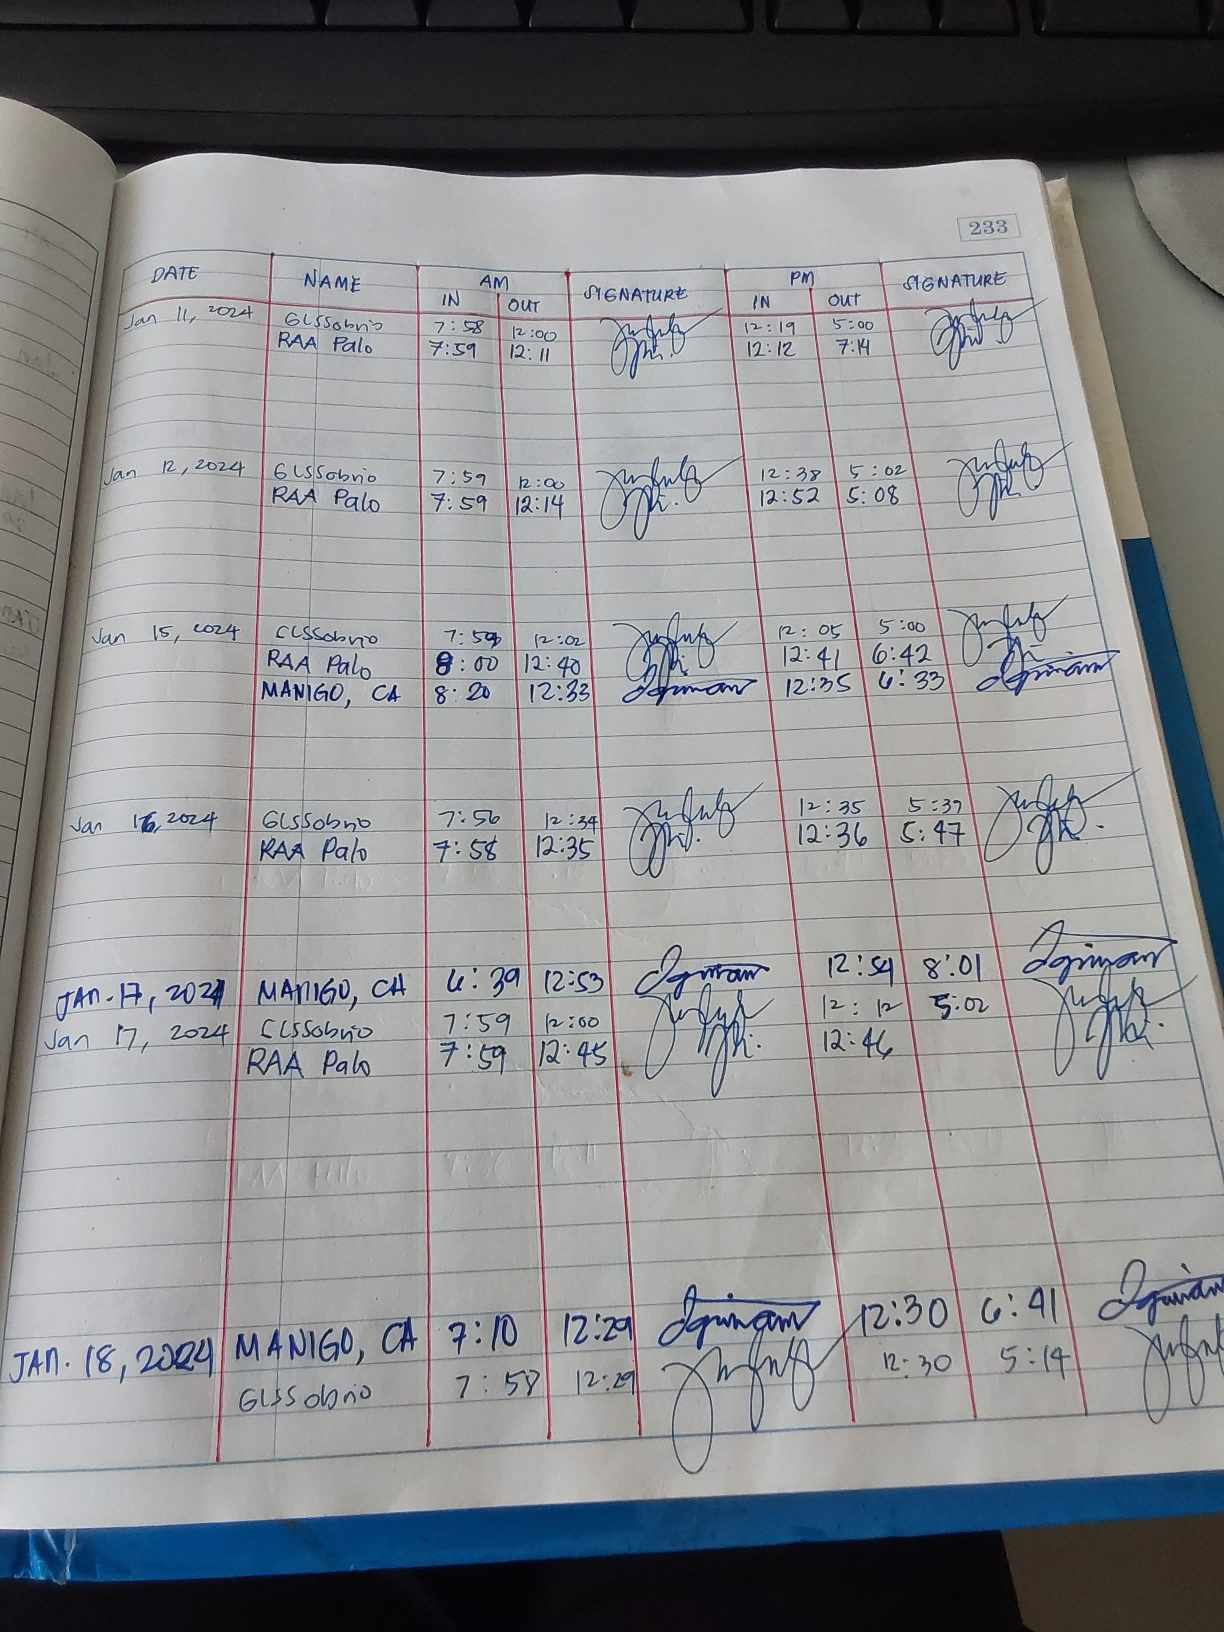 233
DATE NAME AM SIGNATURE PM SIGNATURE
IN OUT IN OUT
Jan 11, 2024 GLSSobrio 7:58 12:00 12:19 5:00
RAA Palo 7:59 12:11 12:12 7:14
Jan 12, 2024 GLSSobrio 7:59 12:00 12:38 5:02
RAA Palo 7:59 12:14 12:52 5:08
Jan 15, 2024 GLSSobrio 7:59 12:02 12:05 5:00
RAA Palo 8:00 12:40 12:41 6:42
MANIGO, CA 8:20 12:33 12:35 6:33
Jan 16, 2024 GLSSobrio 7:56 12:34 12:35 5:37
RAA Palo 7:58 12:35 12:36 5:47
JAN. 17, 2024 MANIGO, CA 6:39 12:53 12:54 8:01
Jan 17, 2024 GLSSobrio 7:59 12:00 12:12 5:02
RAA Palo 7:59 12:45 12:46
JAN. 18, 2024 MANIGO, CA 7:10 12:29 12:30 6:41
GLSSobrio 7:58 12:29 12:30 5:14